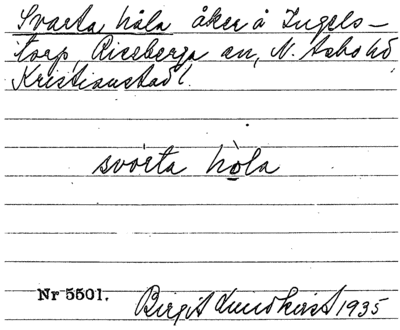 Svarta håla åker å Ingels-
torp, Riseberga sn, N. Åsbo hd
Kristianstad l.
svȧrta hòla
Nr 5501. Birgit Lundkvist 1935